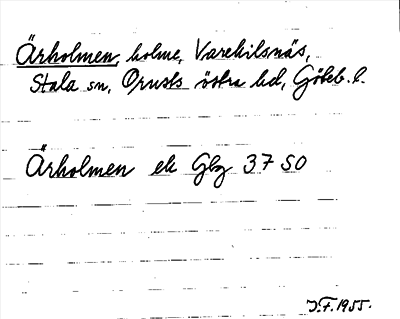 Ärholmen, holme, Varekilsnäs,
Stala sn, Orusts östra hd, Göteb. l.
Ärholmen ek Gbg 37 SO
J.F. 1955.